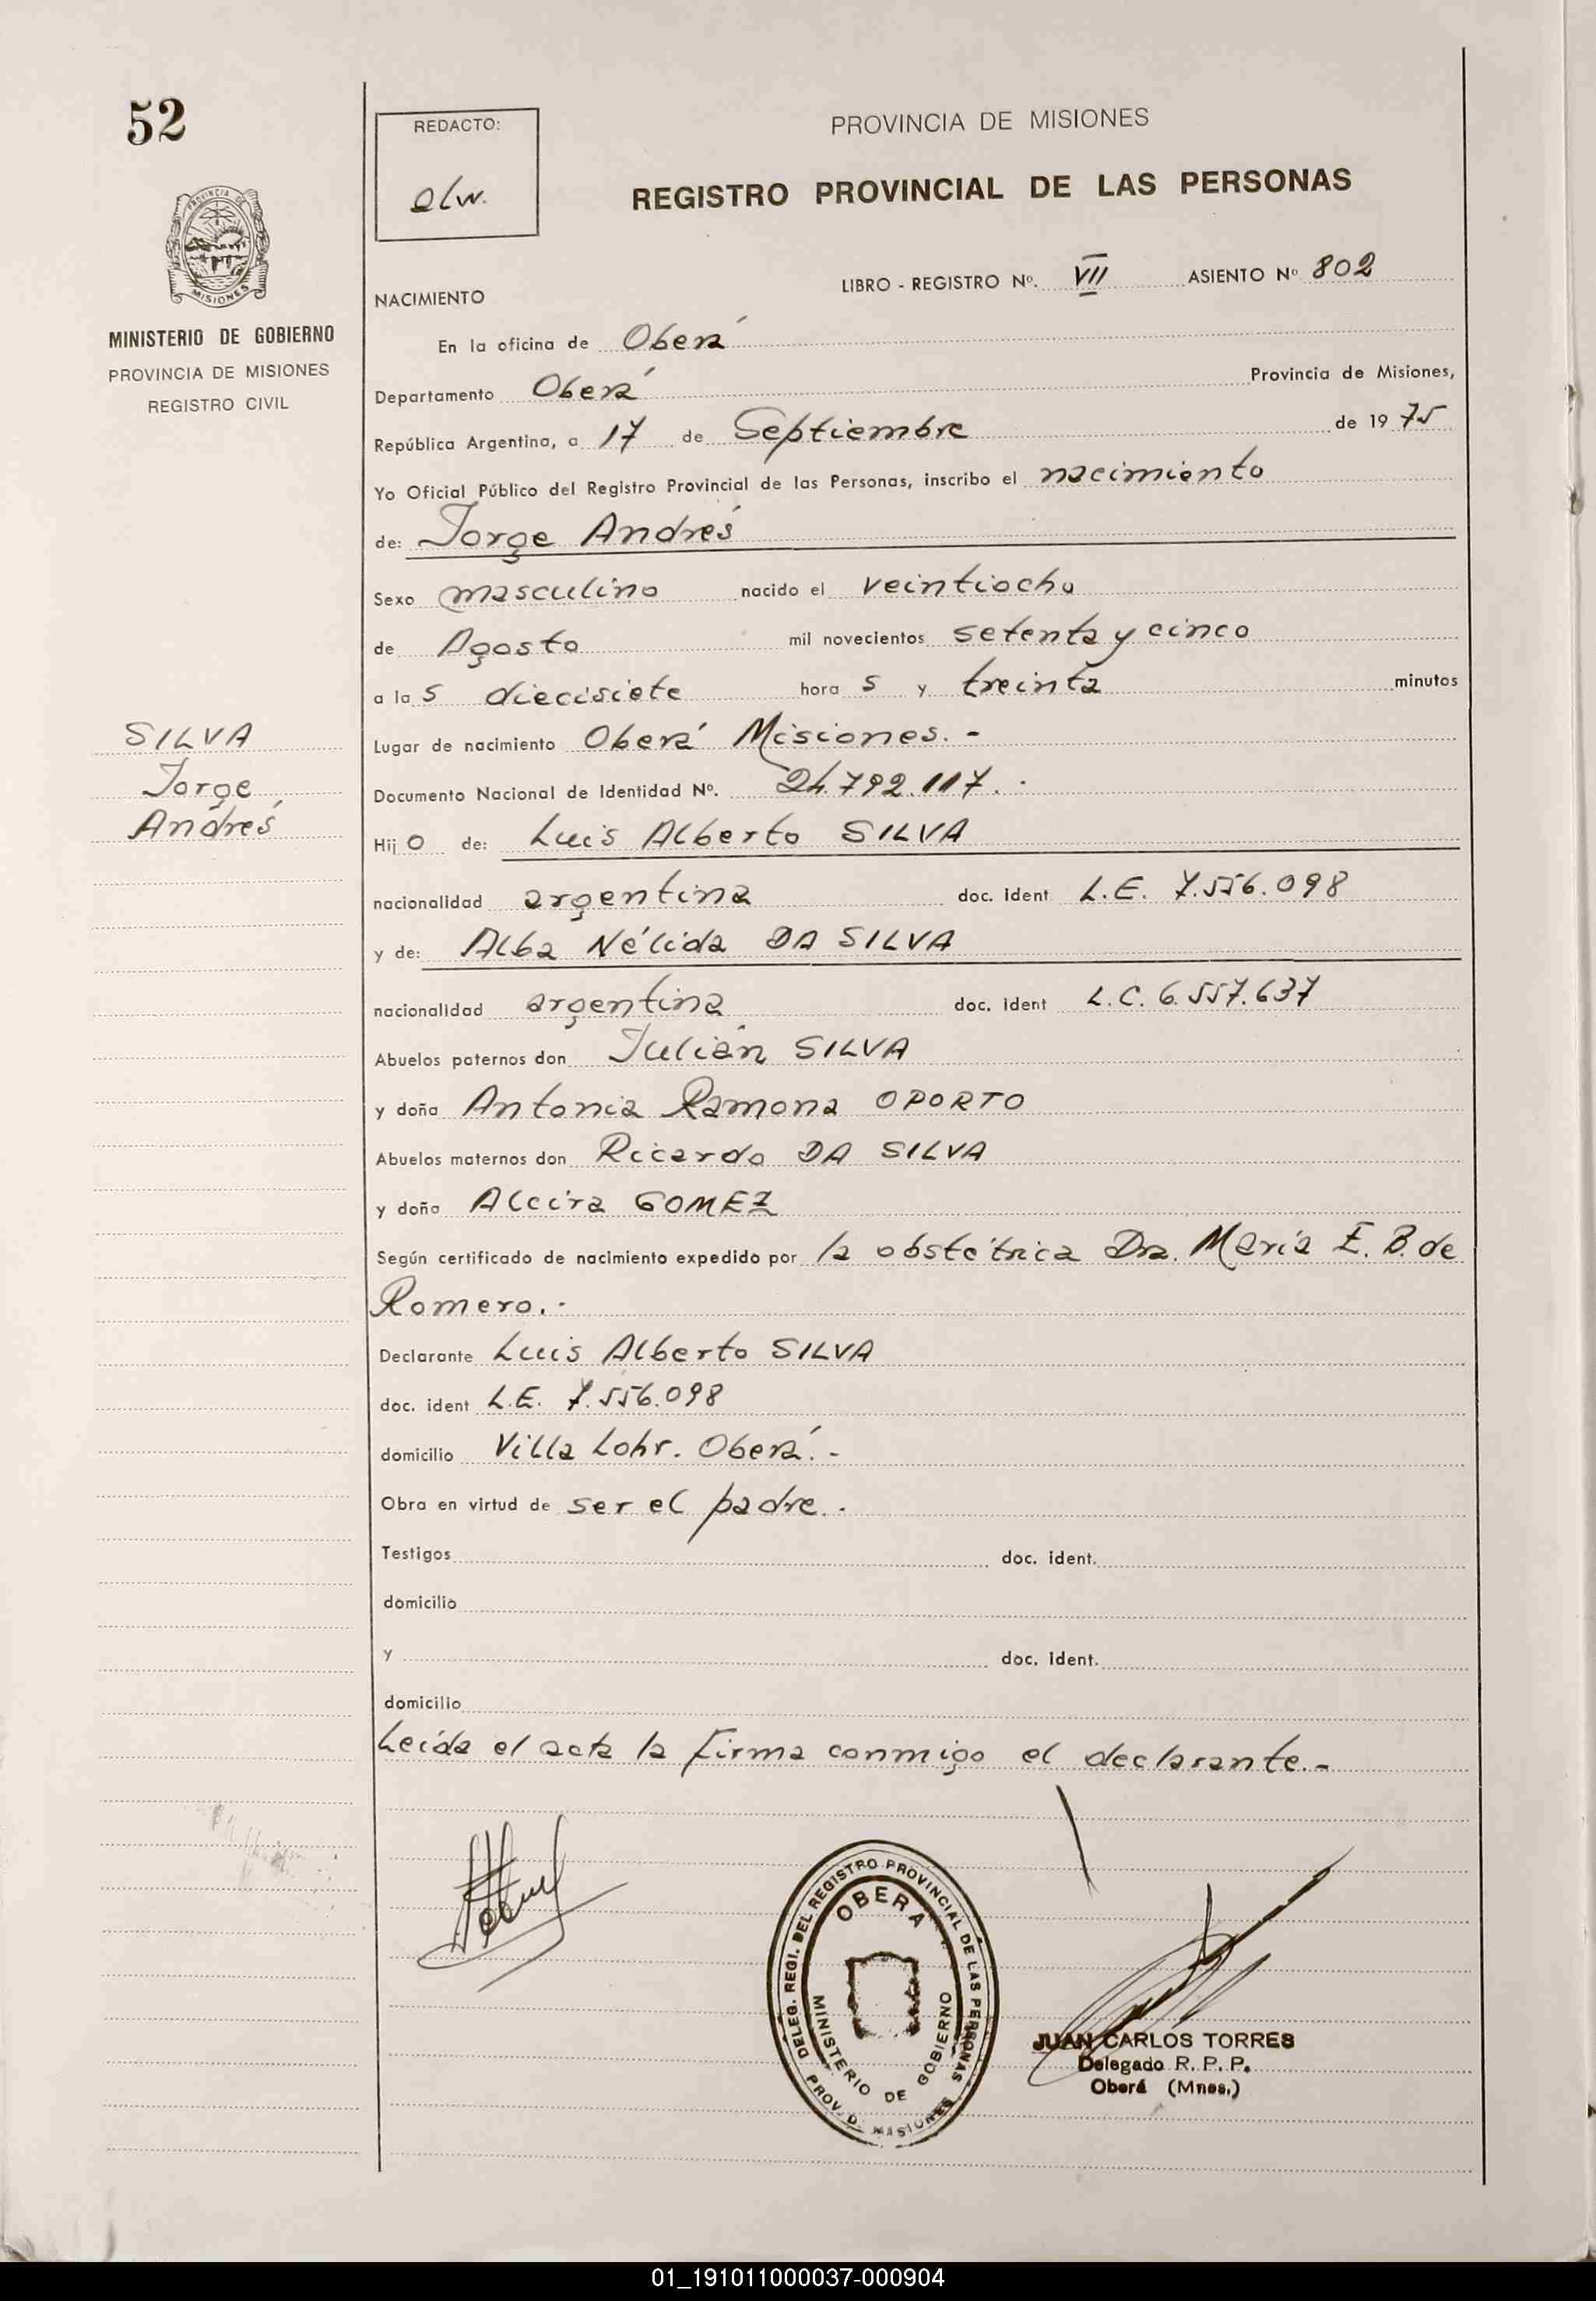 52
REDACTO:
PROVINCIA DE MISIONES
REGISTRO PROVINCIAL DE LAS PERSONAS
PROVINCIA DE
MISIONES
MINISTERIO DE GOBIERNO
PROVINCIA DE MISIONES
REGISTRO CIVIL
LIBRO - REGISTRO Nº. VII ASIENTO Nº 802
NACIMIENTO
En la oficina de Oberá
Departamento Oberá Provincia de Misiones,
República Argentina, a 17 de Septiembre de 1975
Yo Oficial Público del Registro Provincial de las Personas, inscribo el nacimiento
de: Jorge Andrés
Sexo masculino nacido el veintiocho
de Agosto mil novecientos setenta y cinco
a las diecisiete horas y treinta minutos
SILVA
Jorge
Andrés
Lugar de nacimiento Oberá Misiones. -
Documento Nacional de Identidad Nº. 24.792.117. -
Hijo de: Luis Alberto SILVA
nacionalidad argentina doc. ident L.E. 7.556.098
y de: Alba Nélida DA SILVA
nacionalidad argentina doc. ident L.C. 6.557.637
Abuelos paternos don Julián SILVA
y doña Antonia Ramona OPORTO
Abuelos maternos don Ricardo DA SILVA
y doña Alcira GOMEZ
Según certificado de nacimiento expedido por la obstétrica Dra. María E. B. de
Romero. -
Declarante Luis Alberto SILVA
doc. ident L.E. 7.556.098
domicilio Villa Lohr. Oberá. -
Obra en virtud de ser el padre. -
Testigos doc. ident.
domicilio
y doc. ident.
domicilio
Leída el acta la firma conmigo el declarante. -
DELEG. REGI. DEL REGISTRO PROVINCIAL DE LAS PERSONAS
OBERA
MINISTERIO DE GOBIERNO
PROV. D. MISIONES
JUAN CARLOS TORRES
Delegado R. P. P.
Oberá (Mnes.)
01_191011000037-000904